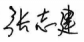 张志建